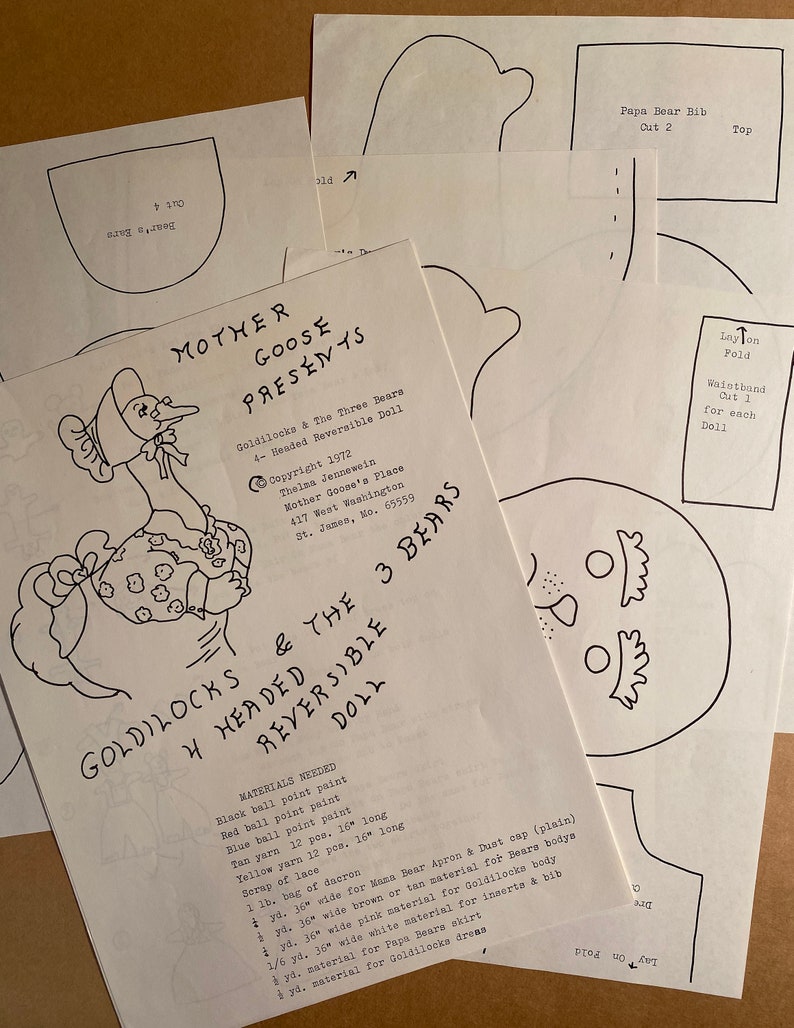 MOTHER
GOOSE
PRESENTS
Goldilocks & The Three Bears
4- Headed Reversible Doll
© Copyright 1972
Thelma Jennewein
Mother Goose's Place
417 West Washington
St. James, Mo. 65559
GOLDILOCKS & THE 3 BEARS
4 HEADED
REVERSIBLE
DOLL
MATERIALS NEEDED
Black ball point paint
Red ball point paint
Blue ball point paint
Tan yarn 12 pcs. 16" long
Yellow yarn 12 pcs. 16" long
Scrap of lace
1 lb. bag of dacron
yd. 36" wide for Mama Bear Apron & Dust cap (plain)
½ yd. 36" wide brown or tan material for Bears bodys
yd. 36" wide pink material for Goldilocks body
1/6 yd. 36" wide white material for inserts & bib
½ yd. material for Papa Bears skirt
½ yd. material for Goldilocks dress
Bear's Ears
Cut 4
Papa Bear Bib
Cut 2
Top
Lay on
Fold
Waistband
Cut 1
for each
Doll
Lay On Fold